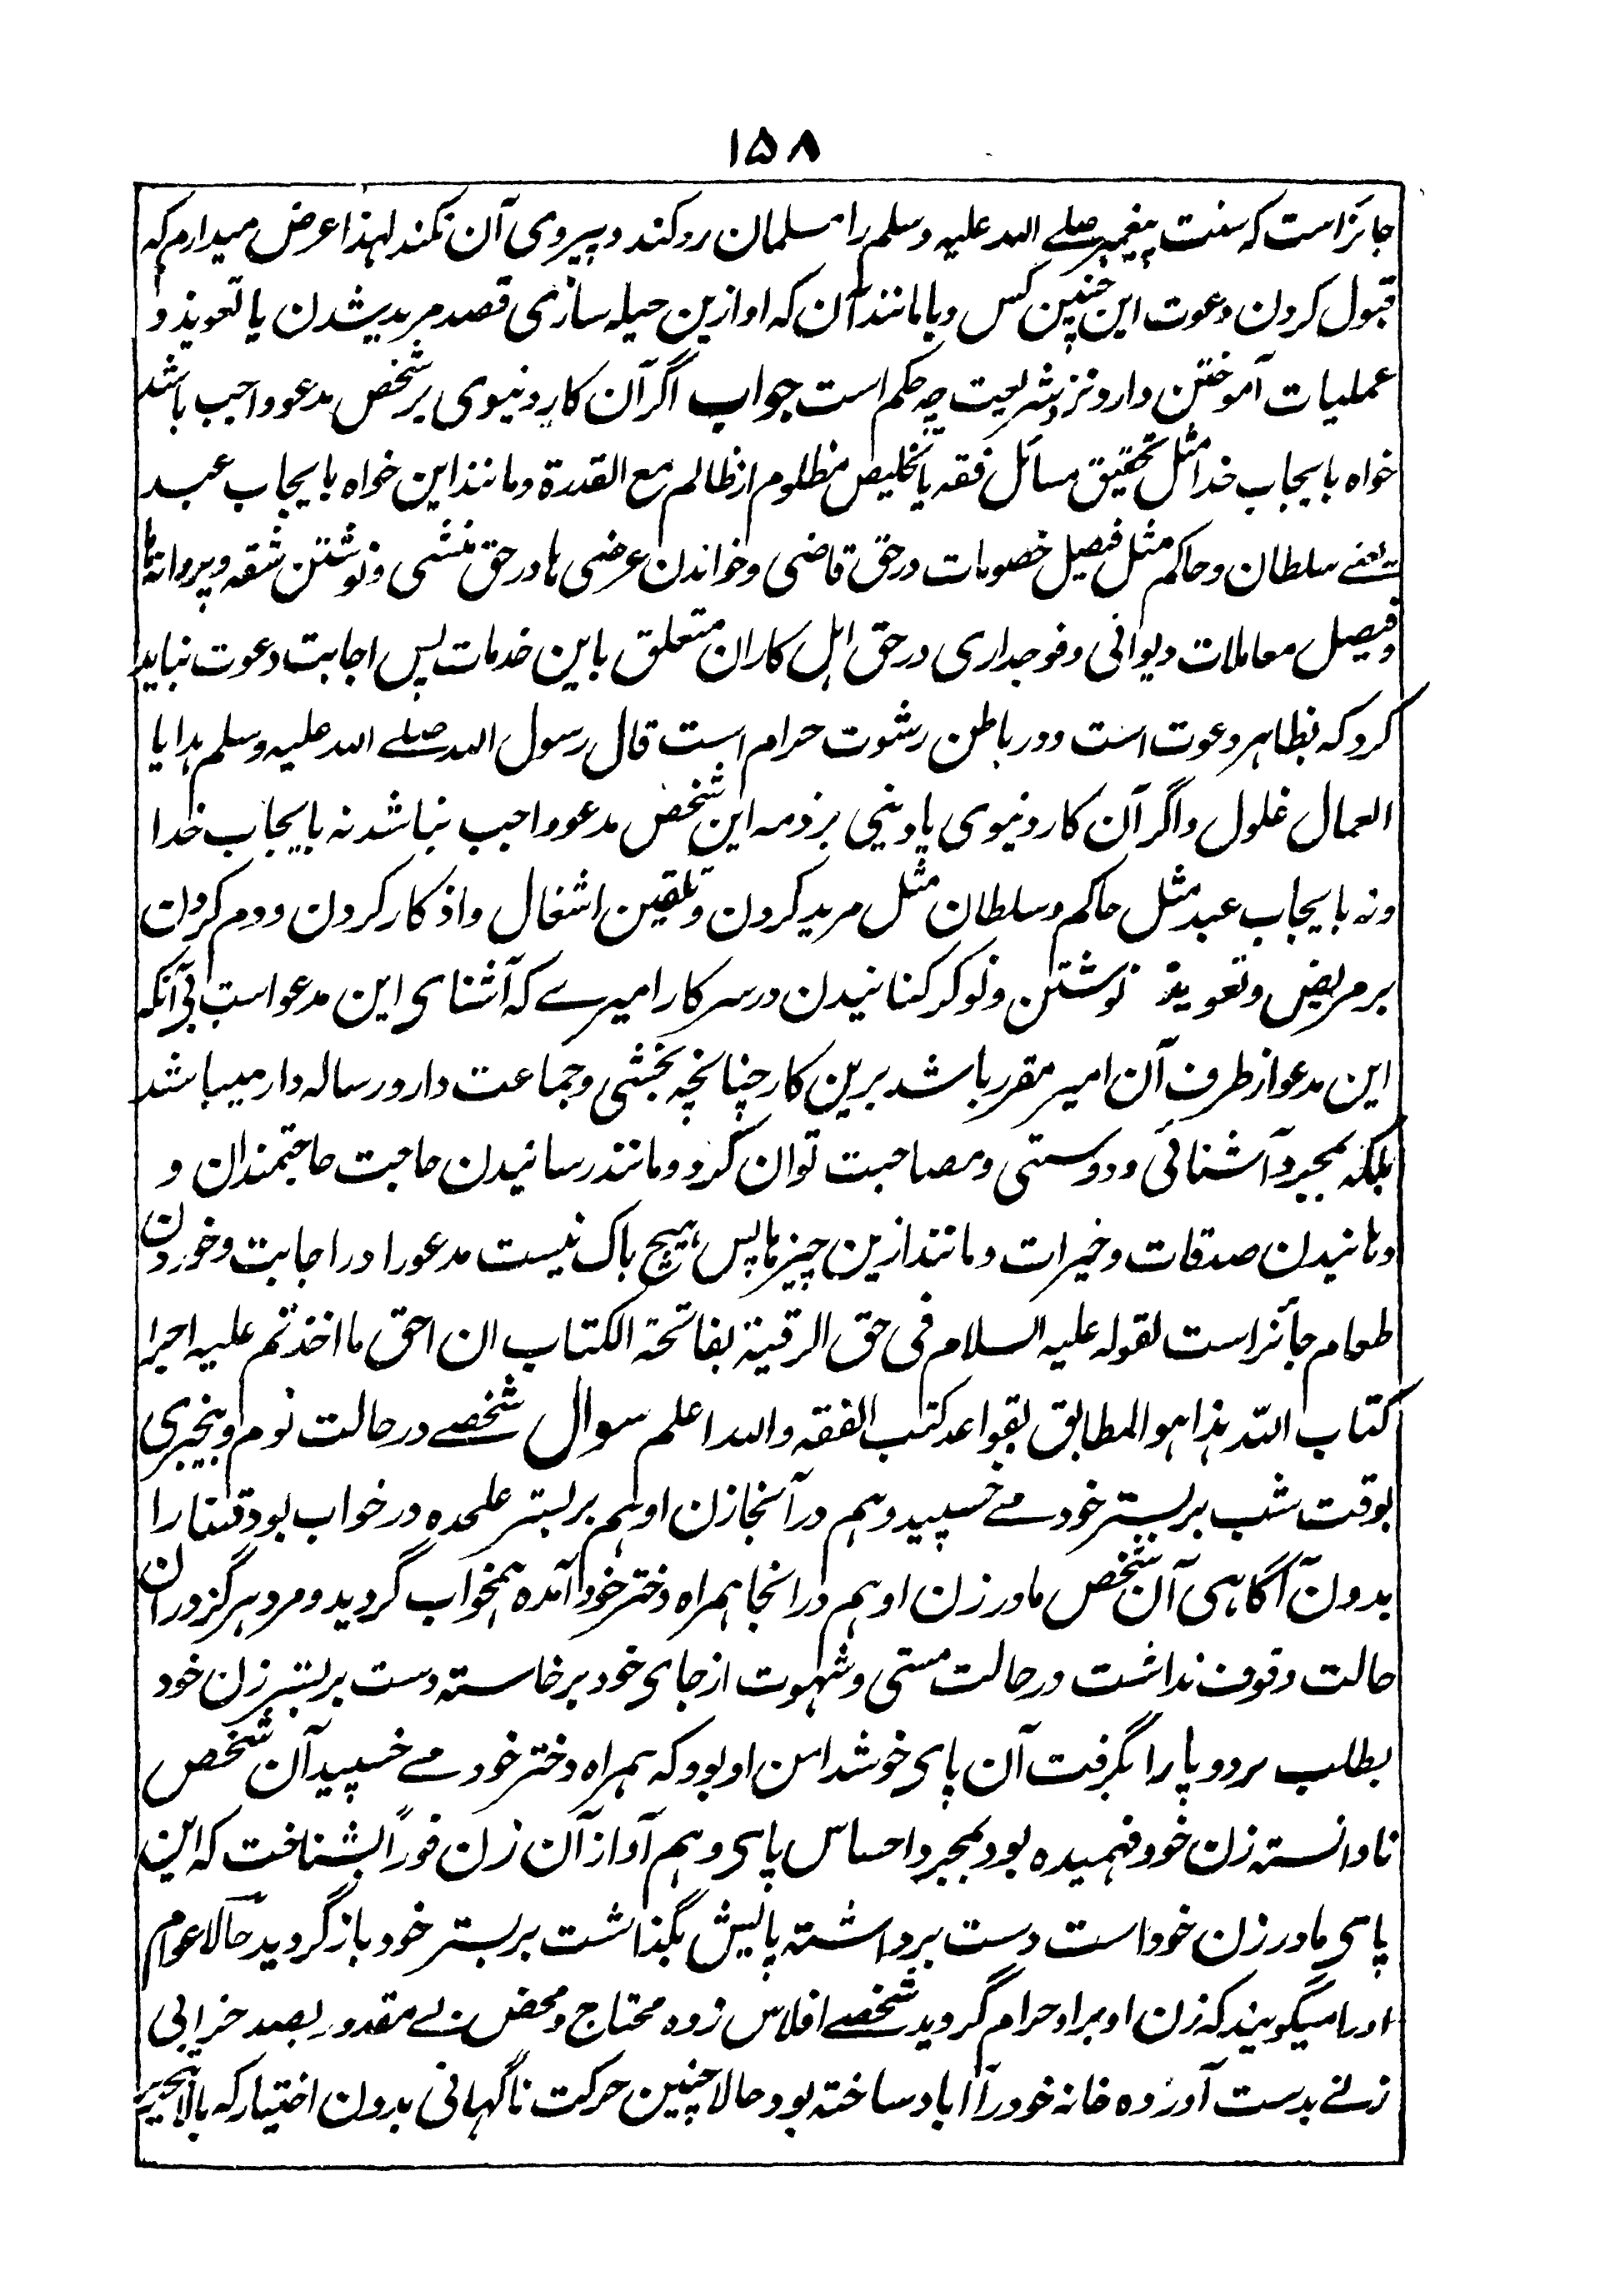 ۱۵۸
جائز است که سنت پیغمبر صلے الله علیه وسلم را مسلمان رد کند و پیروی آن نکند لهذا عرض میدارم که
قبول کردن دعوت این چنین کس و یا مانند آن که او ازین حیله سازی قصد مرید شدن یا تعویذ و
عملیات آموختن دارد نزد شریعت چه حکم است جواب اگر آن کار دنیوی بر شخص مدعو واجب باشد
خواه بایجاب خدا مثل تحقیق مسائل فقه یا تخلیص مظلوم از ظالم مع القدرة و مانند این خواه بایجاب عبد
یعنے سلطان و حاکم مثل فیصل خصومات در حق قاضی و خواندن عرضی ها در حق منشی و نوشتن شقه و پروانها
و فیصل معاملات دیوانی و فوجداری در حق اهل کاران متعلق باین خدمات پس اجابت دعوت نباید
کرد که بظاهر دعوت است و در باطن رشوت حرام است قال رسول الله صلے الله علیه وسلم هدایا
العمال غلول و اگر آن کار دنیوی یا دینی بر ذمه این شخص مدعو واجب نباشد نه بایجاب خدا
و نه بایجاب عبد مثل حاکم و سلطان مثل مرید کردن و تلقین اشغال و اذکار کردن و دم کردن
بر مریض و تعویذ نوشتن و نوکر کنانیدن در سرکار امیرے که آشنای این مدعو است بی آنکه
این مدعو از طرف آن امیر مقرر باشد برین کار چنانچه بخشی و جماعت دار و رساله دار میباشد
بلکه بمجرد آشنائی و دوستی و مصاحبت توان کرد و مانند رسانیدن حاجت حاجتمندان و
دهانیدن صدقات و خیرات و مانند ازین چیزها پس هیچ باک نیست مدعو را در اجابت و خوردن
طعام جائز است لقوله علیه السلام فی حق الرقیة بفاتحة الکتاب ان احق ما اخذتم علیه اجرا
کتاب الله هذا هو المطابق لقواعد کتب الفقه والله اعلم سوال شخصے در حالت نوم و بیخبری
بوقت شب بر بستر خود مے خسپید و هم در آنجا زن او هم بر بستر علحده در خواب بود قضا را
بدون آگاهی آن شخص مادر زن او هم در انجا همراه دختر خود آمده همخواب گردید و مرد هرگز در آن
حالت وقوف نداشت در حالت مستی و شهوت از جای خود بر خاسته دست بر بستر زن خود
بطلب هر دو پا را بگرفت آن پای خوشدامن او بود که همراه دختر خود مے خسپید آن شخص
نادانسته زن خود فهمیده بود بمجرد احساس پای و هم آواز آن زن فوراً بشناخت که این
پای مادر زن خود است دست برداشته پایش بگذاشت بر بستر خود باز گردید حالا عوام
اورا میگویند که زن او بر او حرام گردید شخصے افلاس زده محتاج و محض بے مقدور بصد خرابی
زنے بدست آورده خانه خود را آباد ساخته بود حالا چنین حرکت ناگهانی بدون اختیار که